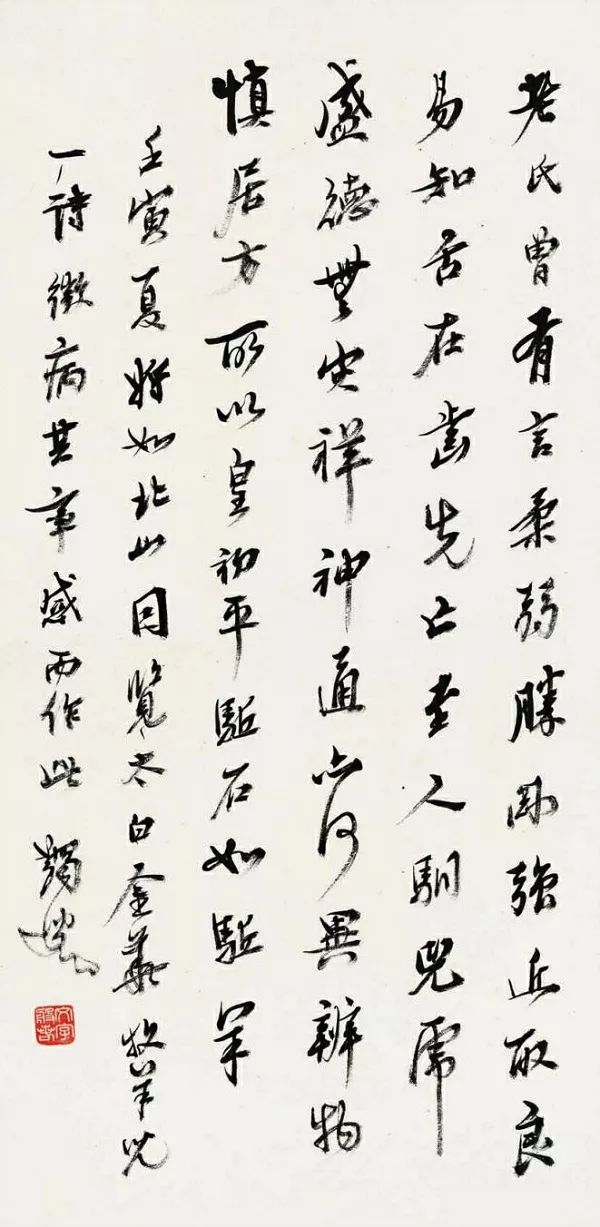 老氏曾有言柔弱勝剛強近取良
易知舌在齒先亡至人馴兕虎
盛德無灾祥神通亦何異辨物
慎居方所以皇初平駈石如駈羊
壬寅夏將如北山因覽太白金華牧羊兒
一詩微病其事感而作此 蠲叟
文字般若